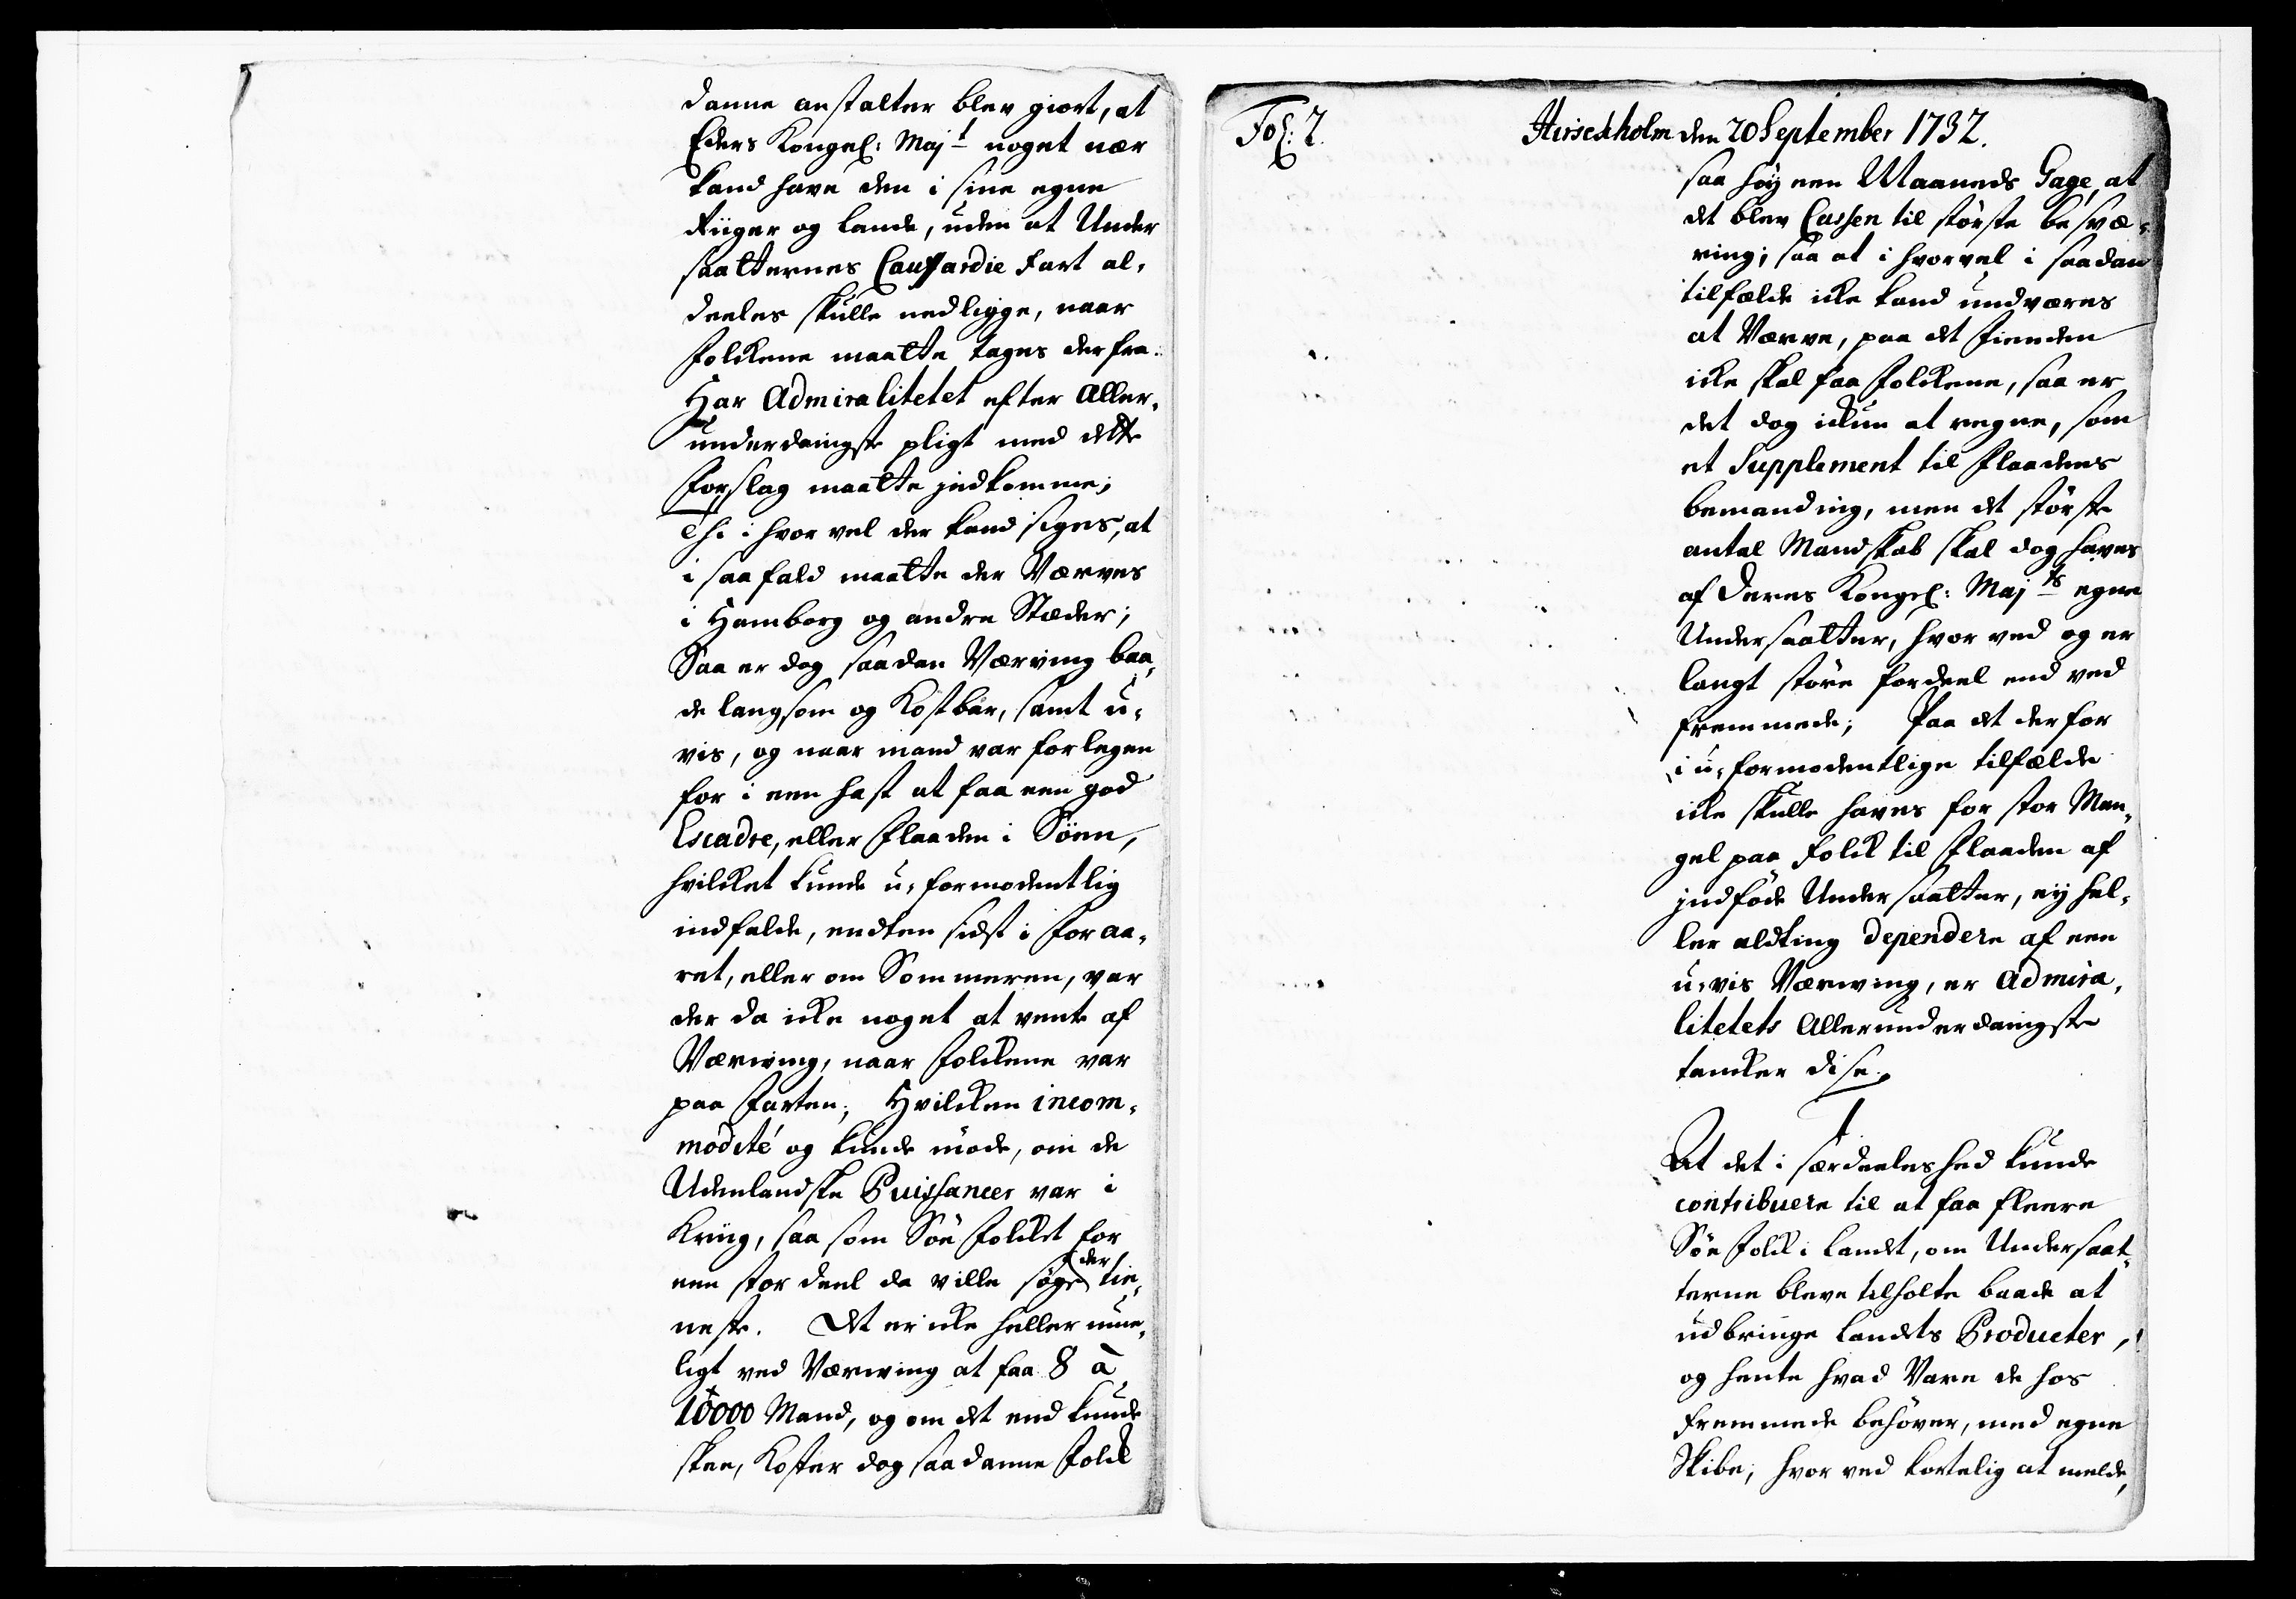 danne anstalter blev giort, at
Eders Kongel: Majt noget nær
kand have den i sine egne
Riiger og Lande, uden at Under
saatternes Cauffardie Fart al-
deeles skulle nedligge, naar
Folckene maatte tages derfra.
Har Admiralitetet efter Aller-
underdanigste pligt med dette
Forslag maatte indkomme;
Thi i hvor vel der kand siges, at
i saa fald maatte der Værves
i Hamborg og andre Stæder;
Saa er dog saadan Værving baa-
de langsom og Kostbar, samt u-
vis, og naar mand var forlegen
for i een hast at faa een god
Escadre, eller Flaaden i Søen,
hvilcket kunde u-formodentlig
indfalde, endten sidst i For aa-
ret, eller om Sommeren, var
der da icke noget at vente af
Værving, naar Folckene var
paa Farten; Hvilcken incom-
modité og kunde møde, om de
Udenlandske Puissancer var i
Kriig, saa som Søe Folcket for
een stor deel da ville søge der tie-
neste. Det er icke heller mue-
ligt ved Værving at faa 8 à
10000 Mand, og om det end kunde
skee, Koster dog saadanne Folck
Fol: 7.
Hirschholm den 20 September 1732.
saa høy een Maaneds Gage, at
det blev Cassen til største besvæ-
ring; saa at i hvorvel i saadan
tilfælde icke kand undværes
at Værve, paa det Fienden
icke skal faa Folckene, saa er
det dog ickun at regne, som
et Supplement til Flaadens
bemanding, men det største
antal Mandskab skal dog haves
af Deres Kongel: Majts egne
Undersaatter, hvor ved og er
langt støre fordeel end ved
fremmede; Paa det derfor
i u-formodentlige tilfælde
icke skulle haves for stor Man-
gel paa Folck til Flaaden af
indføde Undersaatter, ey hel-
ler alting dependere af een
u-vis Værving, er Admira-
litetets Allerunderdanigste
tancker disse.
1
At det i særdeeleshed kunde
contribuere til at faa fleere
Søe Folck i Landet, om Undersaat-
terne bleve tilholte baade at
udbringe Landets Producter,
og hente hvad Vare de hos
Fremmede behøver, med egne
Skibe; hvor ved kortelig at melde,